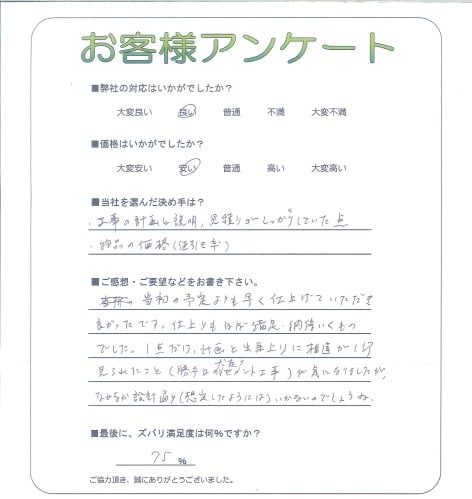 お客様アンケート
■弊社の対応はいかがでしたか？
大変良い 良い 普通 不満 大変不満
■価格はいかがでしたか？
大変安い 安い 普通 高い 大変高い
■当社を選んだ決め手は？
・工事の計画や説明、見積りがしっかりしていた点
・物品の価格（値引き率）
■ご感想・ご要望などをお書き下さい。
当初の予定よりも早く仕上げていただき
良かったです。仕上りもほぼ満足・納得いくもの
でした。1点だけ、計画と出来上りに相違が
見られたこと（勝手口 セメント工事）が気になりましたが、
なかなか設計通り（想定したようには）いかないのでしょうね。
■最後に、ズバリ満足度は何%ですか？
75 %
ご協力頂き、誠にありがとうございました。